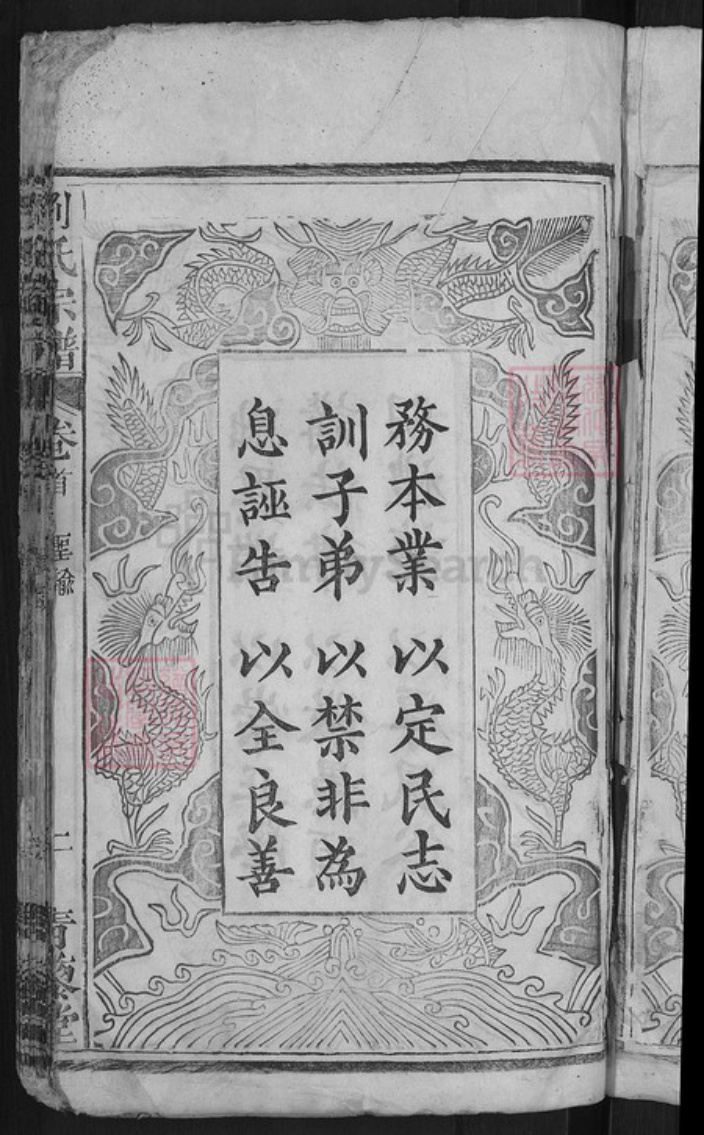 務本業 以定民志
訓子弟 以禁非為
息誣告 以全良善
劉氏宗譜 卷首 聖諭
FamilySearch